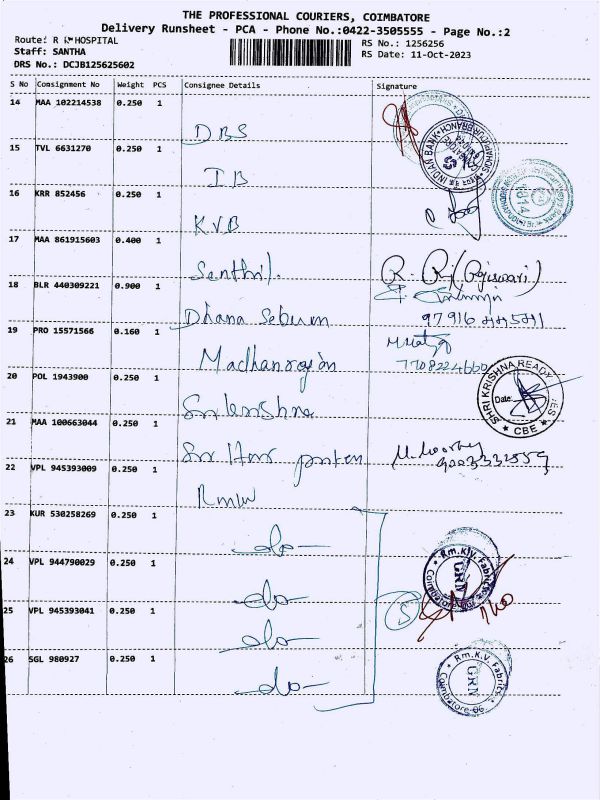 THE PROFESSIONAL COURIERS, COIMBATORE
Delivery Runsheet - PCA - Phone No.:0422-3505555 - Page No.:2
Route: R K HOSPITAL
RS No.: 1256256
Staff: SANTHA
RS Date: 11-Oct-2023
DRS No.: DCJB125625602
S No Consignment No Weight PCS Consignee Details Signature
14 MAA 102214538 0.250 1
DBS
15 TVL 6631270 0.250 1
INDIAN BANK
IB
16 KRR 852456 0.250 1
KVB
17 MAA 861915603 0.400 1
Senthil. R. Rj (Rajeswari)
18 BLR 440309221 0.900 1
Dhana Sebum
19 PRO 15571566 0.160 1
7708224660
20 POL 1943900 0.250 1
SHRI KRISHNA READY
Date:
★ CBE ★
21 MAA 100663044 0.250 1
22 VPL 945393009 0.250 1
RmKV
23 KUR 530258269 0.250 1
-do-
Rm.K.V. Fabrics
GRN
24 VPL 944790029 0.250 1
-do-
25 VPL 945393041 0.250 1
5
-do-
26 SGL 980927 0.250 1
-do-
Rm.K.V. Fabrics
GRN
Coimbatore-06